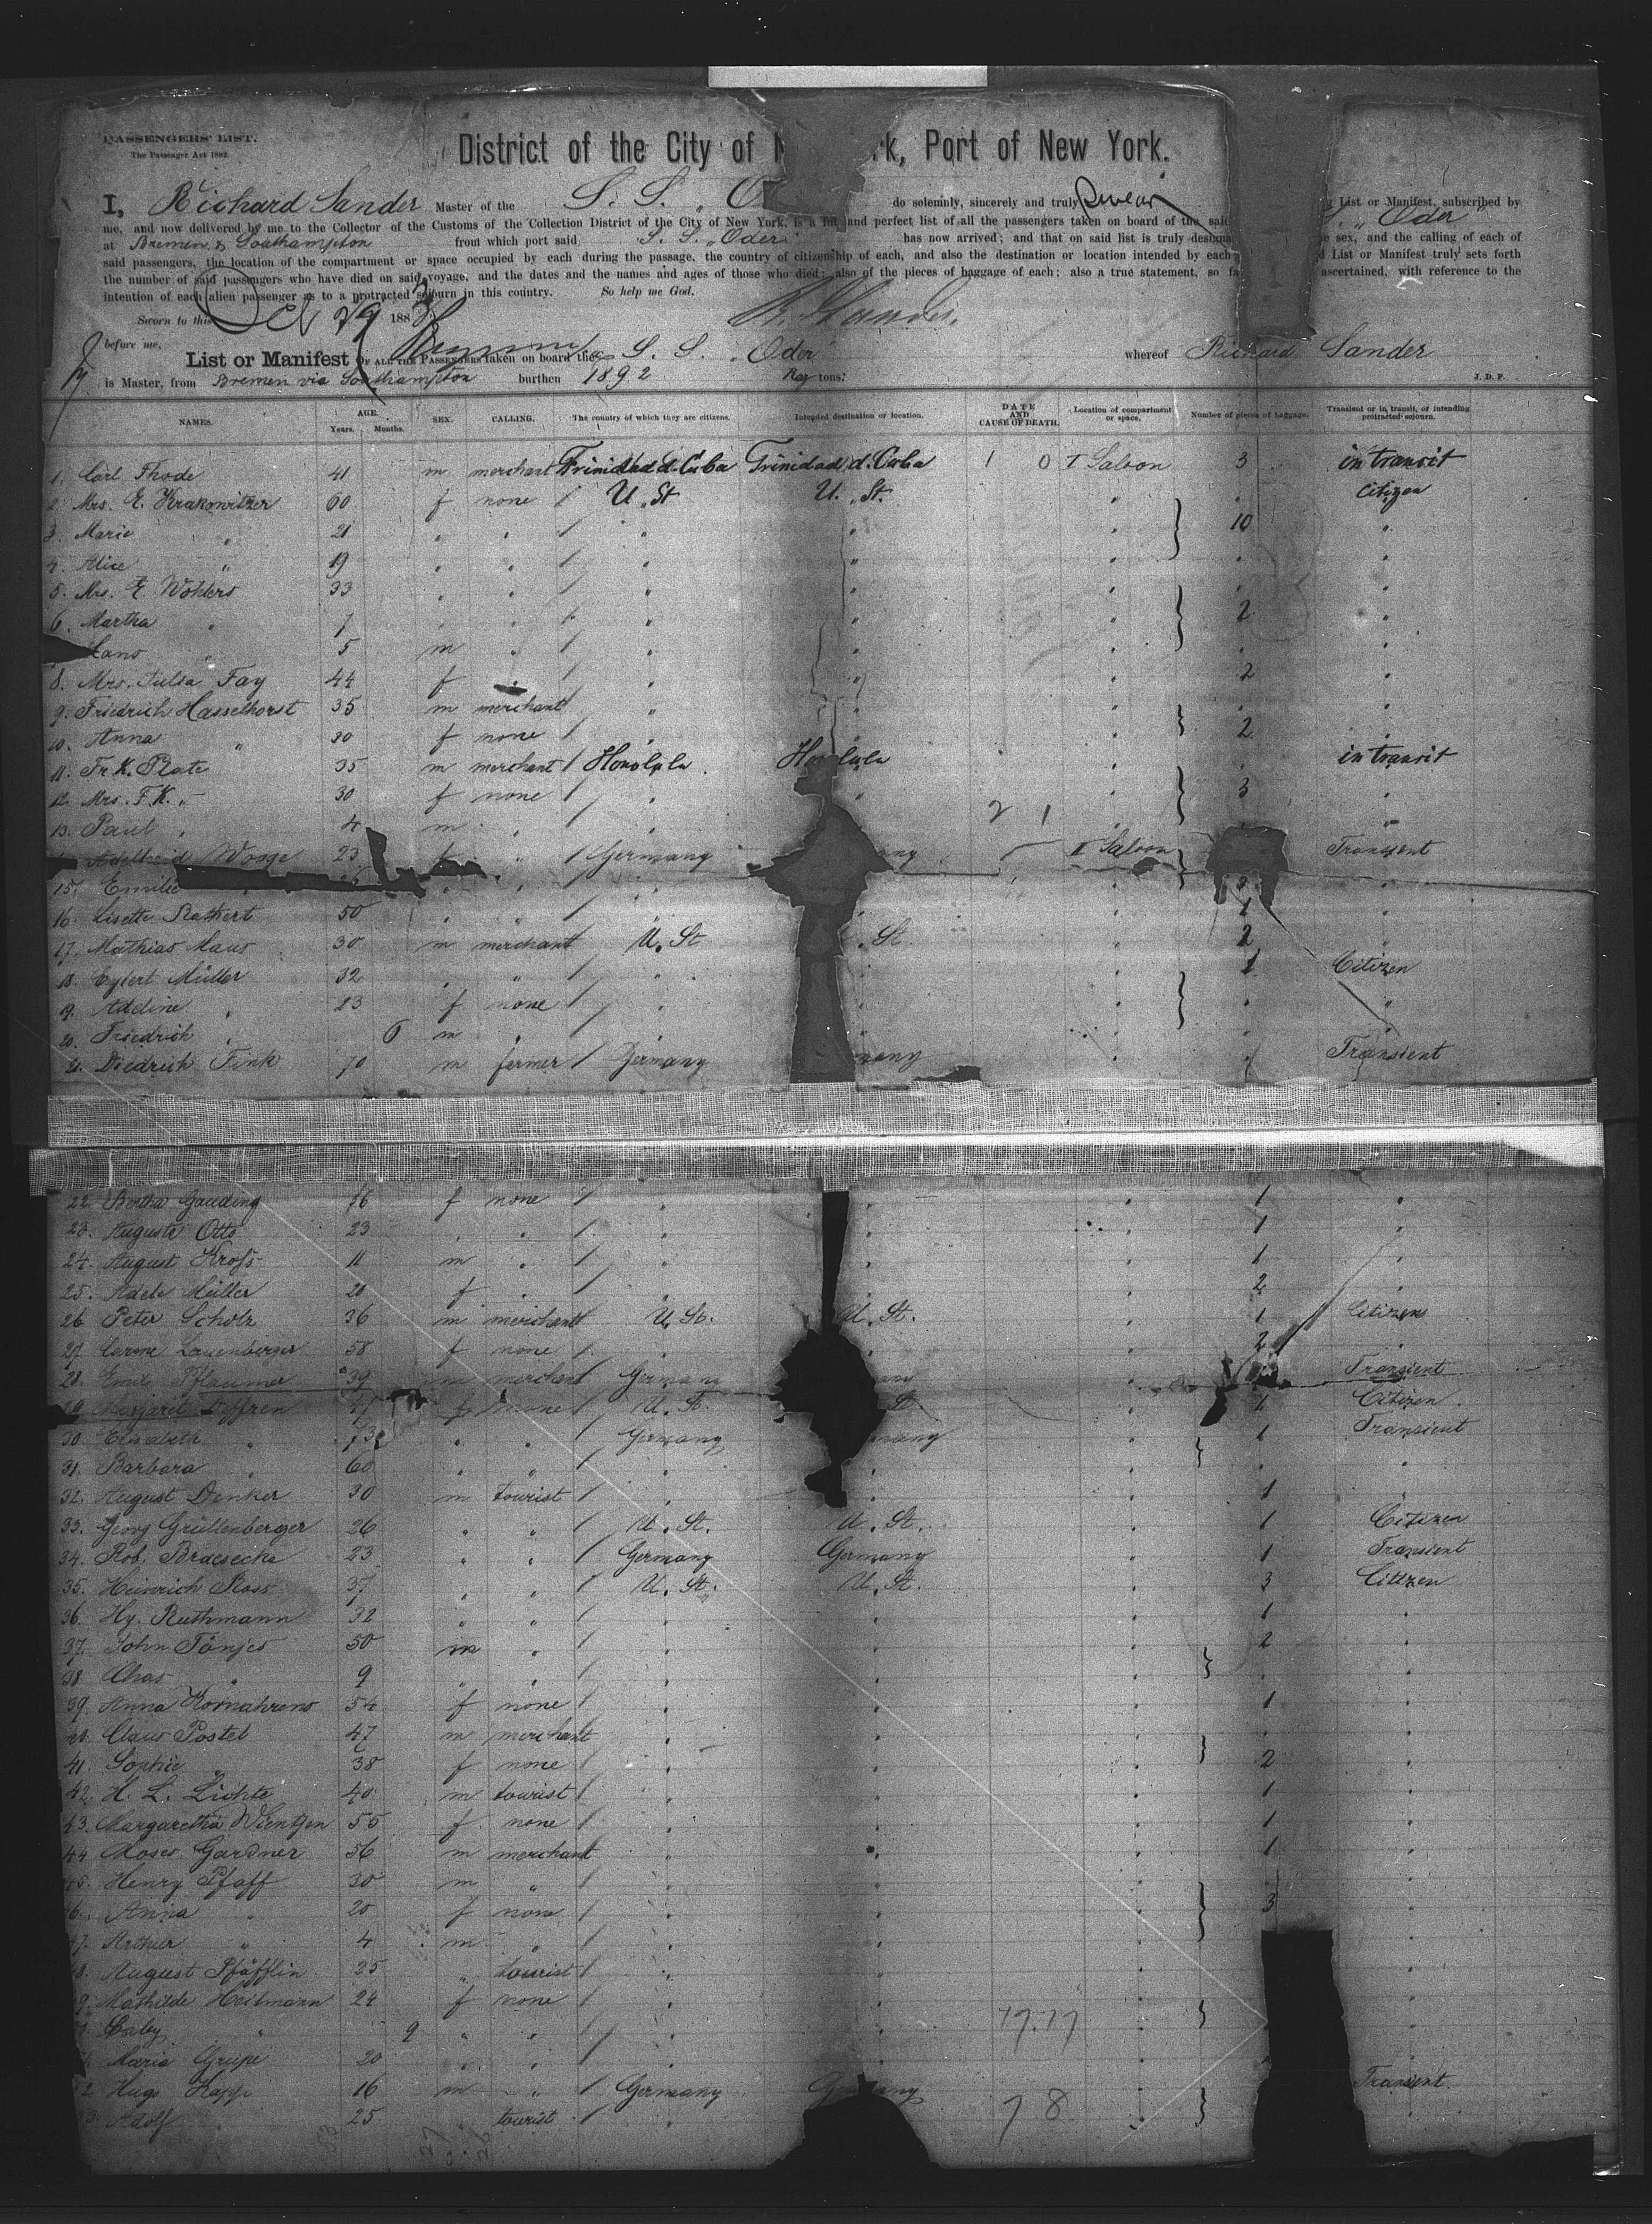 PASSENGERS' LIST.
The Passenger Act 1882.
District of the City of N rk, Port of New York.
I, Richard Sander Master of the S. S. „ O do solemnly, sincerely and truly Swear g List or Manifest, subscribed by
me, and now delivered by me to the Collector of the Customs of the Collection District of the City of New York, is a full and perfect list of all the passengers taken on board of the said S. „ Oder"
at Bremen & Southampton from which port said S. S. „Oder" has now arrived; and that on said list is truly designa e sex, and the calling of each of
said passengers, the location of the compartment or space occupied by each during the passage, the country of citizenship of each, and also the destination or location intended by each d List or Manifest truly sets forth
the number of said passengers who have died on said voyage, and the dates and the names and ages of those who died; also of the pieces of baggage of each; also a true statement, so fa ascertained, with reference to the
intention of each alien passenger as to a protracted sojourn in this country. So help me God.
Sworn to this Oct 29 188 R. Sander.
before me,
List or Manifest OF ALL THE PASSENGERS taken on board the S. S. „Oder" whereof Richard Sander
is Master, from Bremen via Southampton burthen 1892 Reg tons. J. D. P.
NAMES. AGE. Years. Months. SEX. CALLING. The country of which they are citizens. Intended destination or location. DATE AND CAUSE OF DEATH. Location of compartment or space. Number of pieces of baggage. Transient or in transit, or intending protracted sojourn.
1. Carl Thode 41 m merchant Trinidad d. Cuba Trinidad d. Cuba 1 0 I Saloon 3 in transit
2. Mrs. E. Krakowitzer 60 f none / U. St U. St. " Citizen
3. Marie " 21 " " / " " " 10 "
4. Alice " 19 " " / " " " " "
5. Mrs. E. Wohlers 33 " " / " " " " "
6. Martha " 7 " " / " " " 2 "
Hans " 5 m " / " " " " "
8. Mrs. Julia Fay 44 f " / " " " 2 "
9. Friedrich Hasselhorst 35 m merchant " " " " "
10. Anna " 30 f none / " " 2 "
11. Fr. K. Plate 35 m merchant / Honolulu Honolulu " " in transit
12. Mrs. F. K. " 30 f none / " " " 3 "
13. Paul " 4 m " / " 2 1 " "
Adelheid Wooge 23 f " / Germany any II Saloon Transient
15. Emilie " " / " " 3 "
16. Lisette Rathert 50 " " / " " " 1 "
17. Mathias Maus 30 m merchant U. St St " 2
18. Eylert Müller 32 " " / " " " 1 Citizen
19. Adeline " 23 f none / " " " " "
20. Friedrich " 6 m " / " " " "
21. Diedrich Fink 70 m farmer / Germany many " " Transient
22. Bertha Gauding 16 f none / " " " 1 "
23. Auguste Otto 23 " " / " " " 1 "
24. August Kroß 11 m " / " " " 1 "
25. Adele Müller 20 f " / " " " 2 "
26 Peter Scholz 36 m merchant U. St. U. St. " 1 Citizen
27. Carine Lauenberger 58 f none / " " " 2 "
28. Emil Pflaumer 39 m merchant Germany any " Transient
29. Margaret Deffren f none / U. St. St. " 1 Citizen
30. Elisabeth " " " / Germany many " 1 Transient
31. Barbara " 60 " " / " " " " "
32. August Denker 30 m tourist / " " " 1 "
33. Georg Grüllenberger 26 " " / U. St. U. St. " 1 Citizen
34. Rob. Braesecke 23 " " / Germany Germany " 1 Transient
35. Heinrich Ross 37 " " / U. St. U. St. " 3 Citizen
36. Hy. Ruthmann 32 " " / " " " 1 "
37. John Tönjes 50 m " / " " " 2 "
38. Chas " 9 " " / " " " " "
39. Anna Kornahrens 54 f none / " " " 1 "
40. Claus Postel 47 m merchant " " " " "
41. Sophie " 38 f none / " " " 2 "
42. H. L. Lichte 40 m tourist / " " " 1 "
43. Margaretha Wientjen 55 f none / " " " 1 "
44 Moses Gardner 56 m merchant " " " 1 "
45. Henry Pfaff 30 m " / " " " "
46. Anna " 20 f none / " " " 3 "
47. Arthur " 4 m " / " " " "
48. August Pfäfflin 25 " tourist / " " " "
49. Mathilde Heitmann 24 f none / " " " "
Baby " 9 " " / " " 17.17 " "
Maria Grupe 20 " " / " " " "
52 Hugo Kapp 16 m " / Germany Germany " Transient
53. Adolf " 25 " tourist / " 7 8 " "